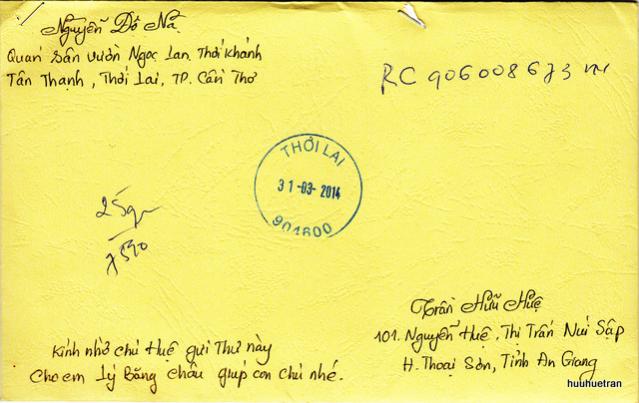 Nguyễn Đô Nã.
Quán Sân vườn Ngọc Lan. Thới Khánh
Tân Thạnh, Thới Lai, TP. Cần Thơ
RC 906008673 VN
THỚI LAI
31-03-2014
901600
25gr
7590
Trần Hữu Huệ
101. Nguyễn Huệ, Thị Trấn Núi Sập
H. Thoại Sơn, Tỉnh An Giang
Kính nhờ chú Huệ gửi Thư này
Cho em Lý Băng Châu giúp con chú nhé.
huuhuetran